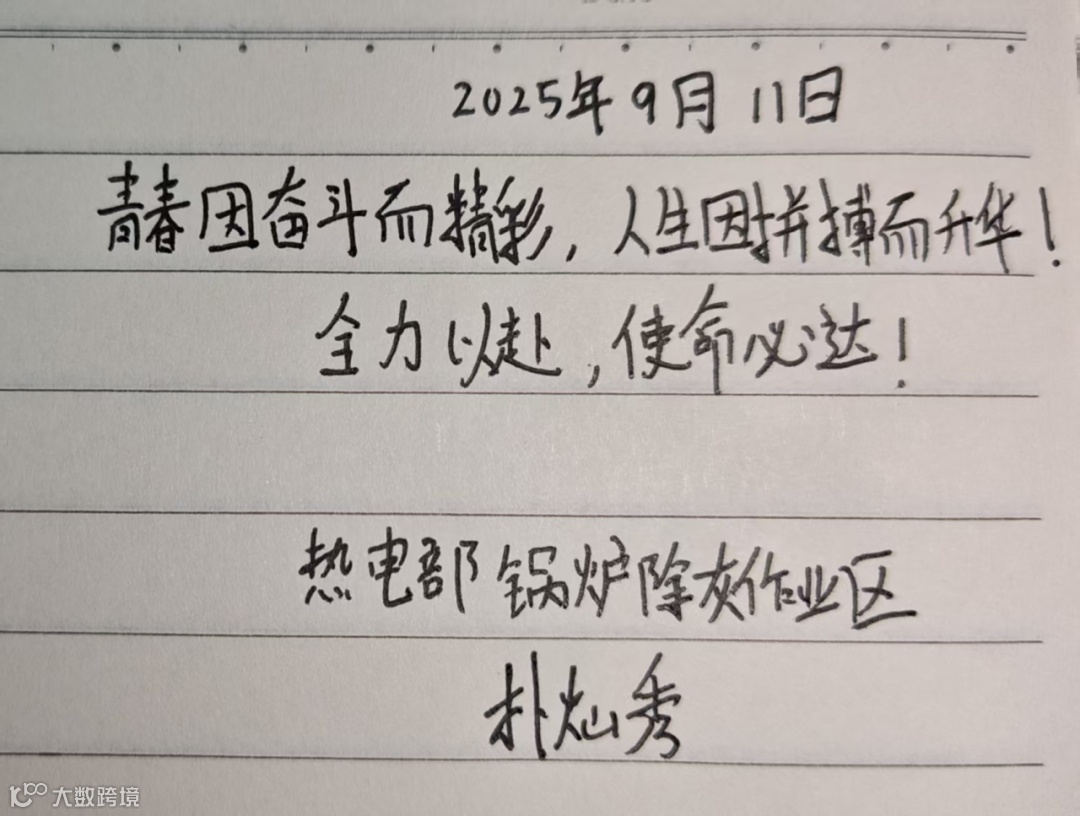 2025年9月11日
青春因奋斗而精彩,人生因拼搏而升华!
全力以赴,使命必达!
热电部锅炉除灰作业区
朴灿秀
大数跨境